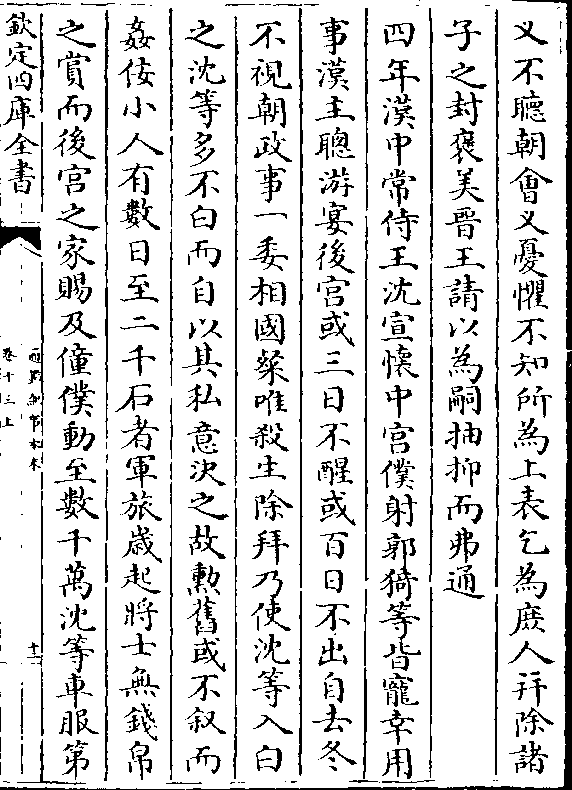 乂不聽朝會乂憂懼不知所為上表乞為庶人并除諸
子之封褒美晉王請以為嗣抽抑而弗通
四年漢中常侍王沈宣懷中宮僕射郭猗等皆寵幸用
事漢主聰游宴後宮或三日不醒或百日不出自去冬
不視朝政事一委相國粲唯殺生除拜乃使沈等入白
之沈等多不白而自以其私意決之故勲舊或不叙而
姦佞小人有數日至二千石者軍旅歲起將士無錢帛
之賞而後宮之家賜及僮僕動至數千萬沈等車服第
欽定四庫全書
通鑑紀事本末
卷十三上
十二